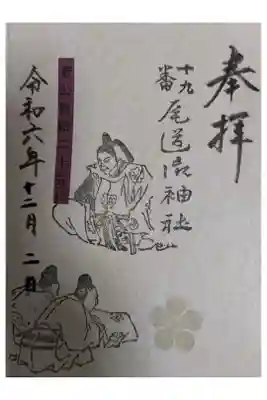 奉拝
十九番
尾道御袖社
令和六年十二月二日